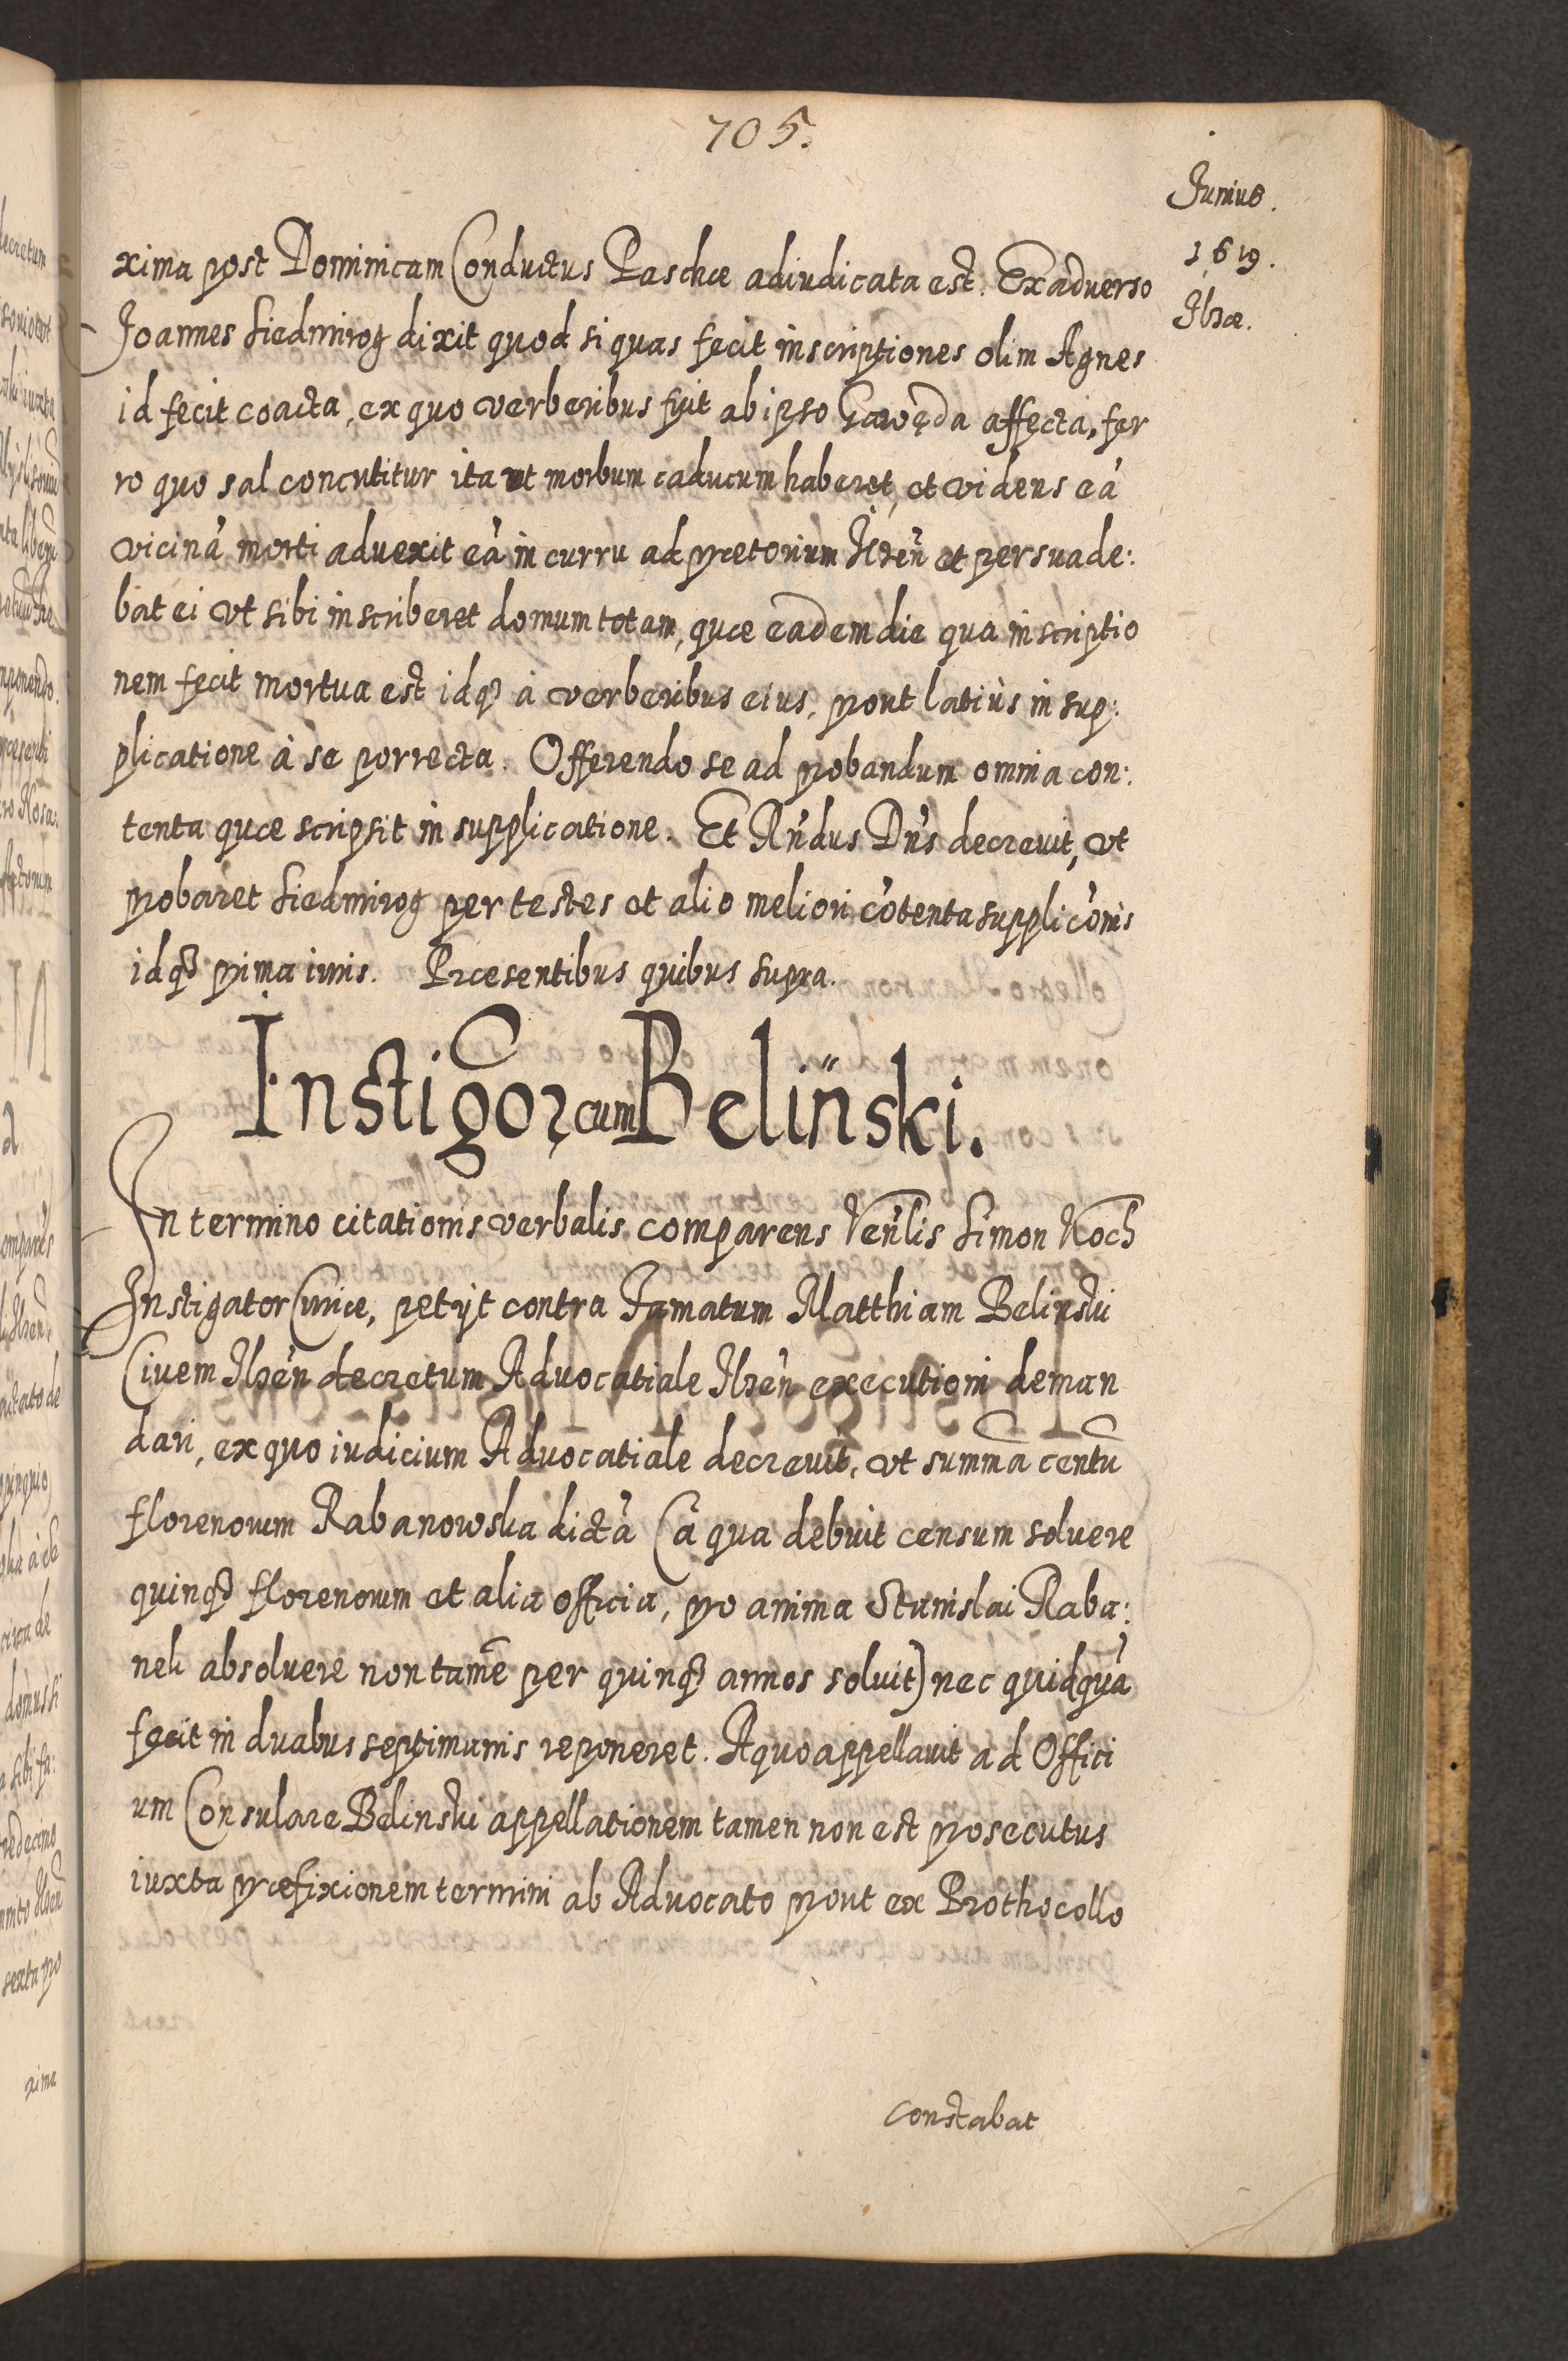 705.
Junius.
1619.
Ilzæ.
xima post Dominicam Conductus Paschæ adiudicata est. Exaduerso
Joannes Siedmirog dixit quod si quas fecit inscriptiones olim Agnes
id fecit coacta, ex quo verberibus fuit ab ipso Gawęda affecta, fer
ro quo sal concutitur ita ut morbum caducum haberet, et videns eã
vicinã morti aduexit eã in curru ad prætorium Ilzeñ et persuade:
bat ei vt sibi inscriberet domum totam, quæ eadem die qua inscriptio
nem fecit mortua est idq3 à verberibus eius, prout latiùs in sup:
plicatione à se porrecta. Offerendo se ad probandum omnia con:
tenta quæ scripsit in supplicatione. Et Rñdus Dñs decreuit, vt
probaret Siedmirog per testes et alio meliori cõtenta supplicõnis
idq3 prima iuris. Præsentibus quibus supra.
Instigõr cum Beliński.
In termino citationis verbalis comparens Veñlis Simon Koch
Instigator Curiæ, petÿt contra Famatum Matthiam Belinski
Ciuem Ilzeñ decretum Aduocatiale Ilzeñ executioni deman
dari, ex quo iudicium Aduocatiale decreuit, vt summã centũ
florenorum Rabanowska dictã (à qua debuit censum soluere
quinq3 florenorum et alia officia, pro anima Stanislai Raba:
nek absoluere non tamẽ per quinq3 annos soluit) nec quidquã
fecit in duabus septimanis reponeret. A quo appellauit ad Offici
um Consulare Belinski appellationem tamen non est prosecutus
iuxta præfixionem termini ab Aduocato prout ex Prothocollo
constabat